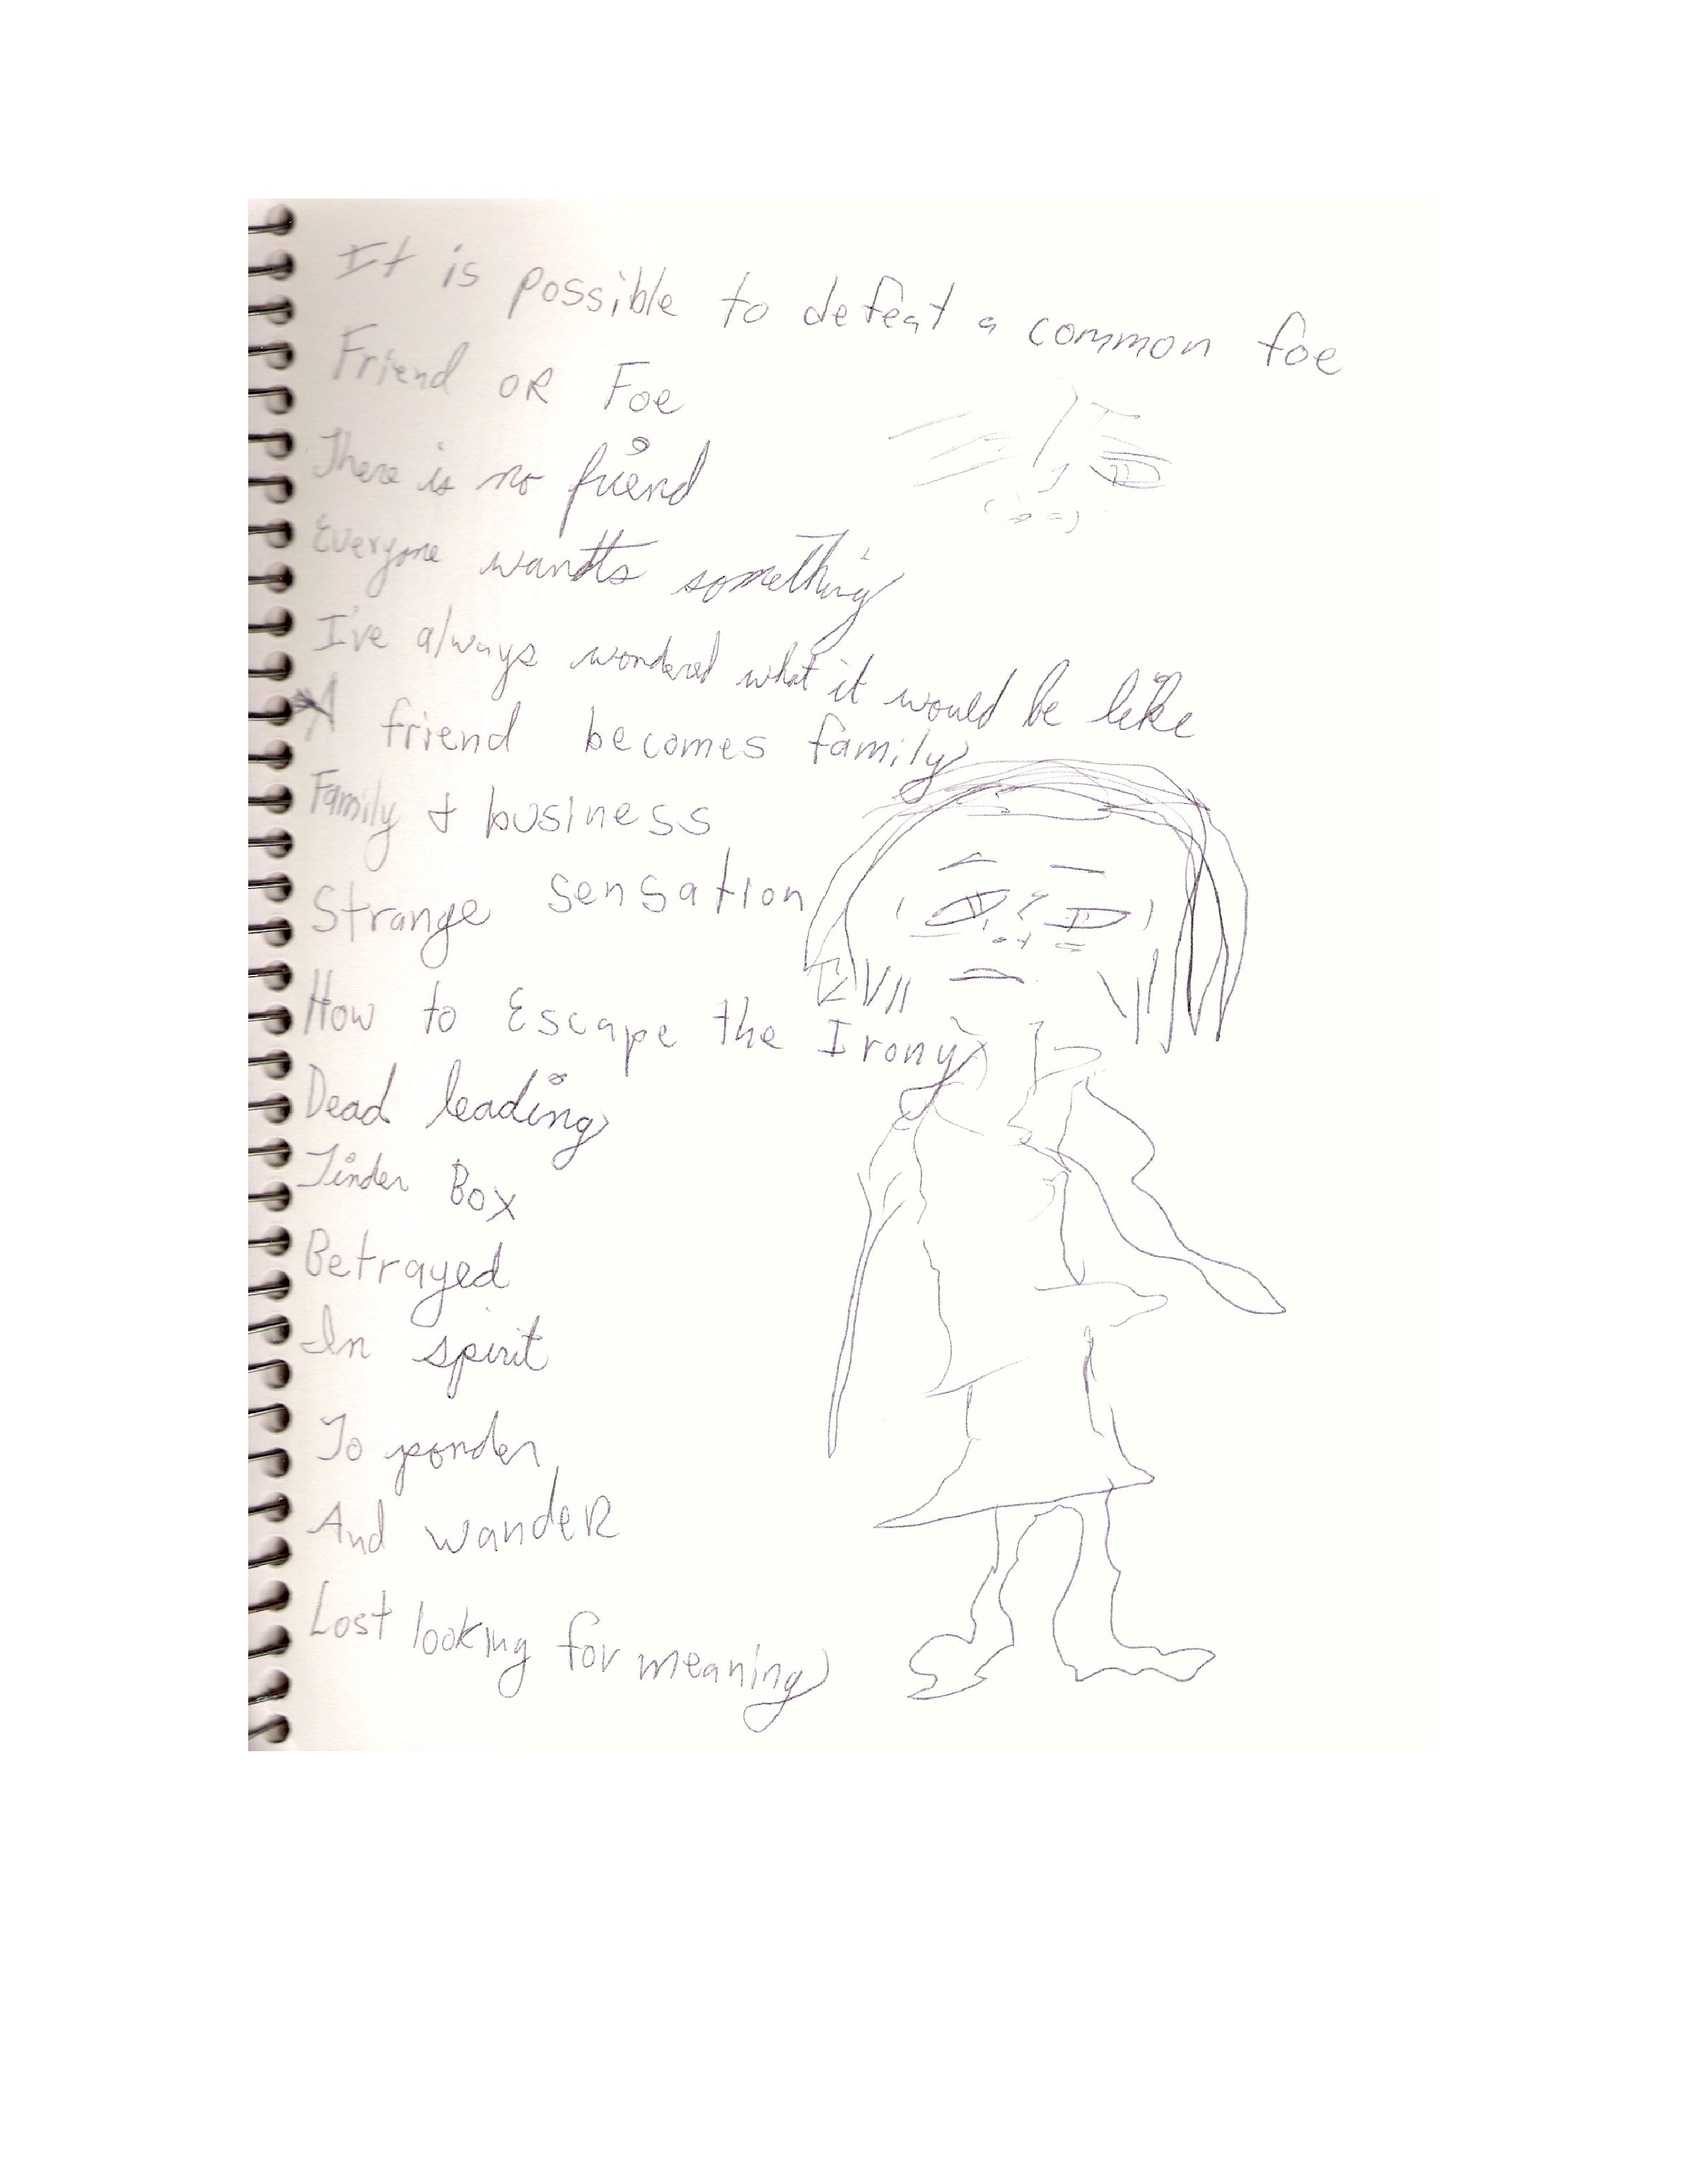 It is possible to defeat a common foe
Friend OR Foe
There is no friend
Everyone wantts something
I've always wondered what it would be like
A friend becomes family
Family & business
Strange sensation
How to Escape the Irony
Dead leading
Tinder Box
Betrayed
In spirit
To ponder
And wander
Lost looking for meaning